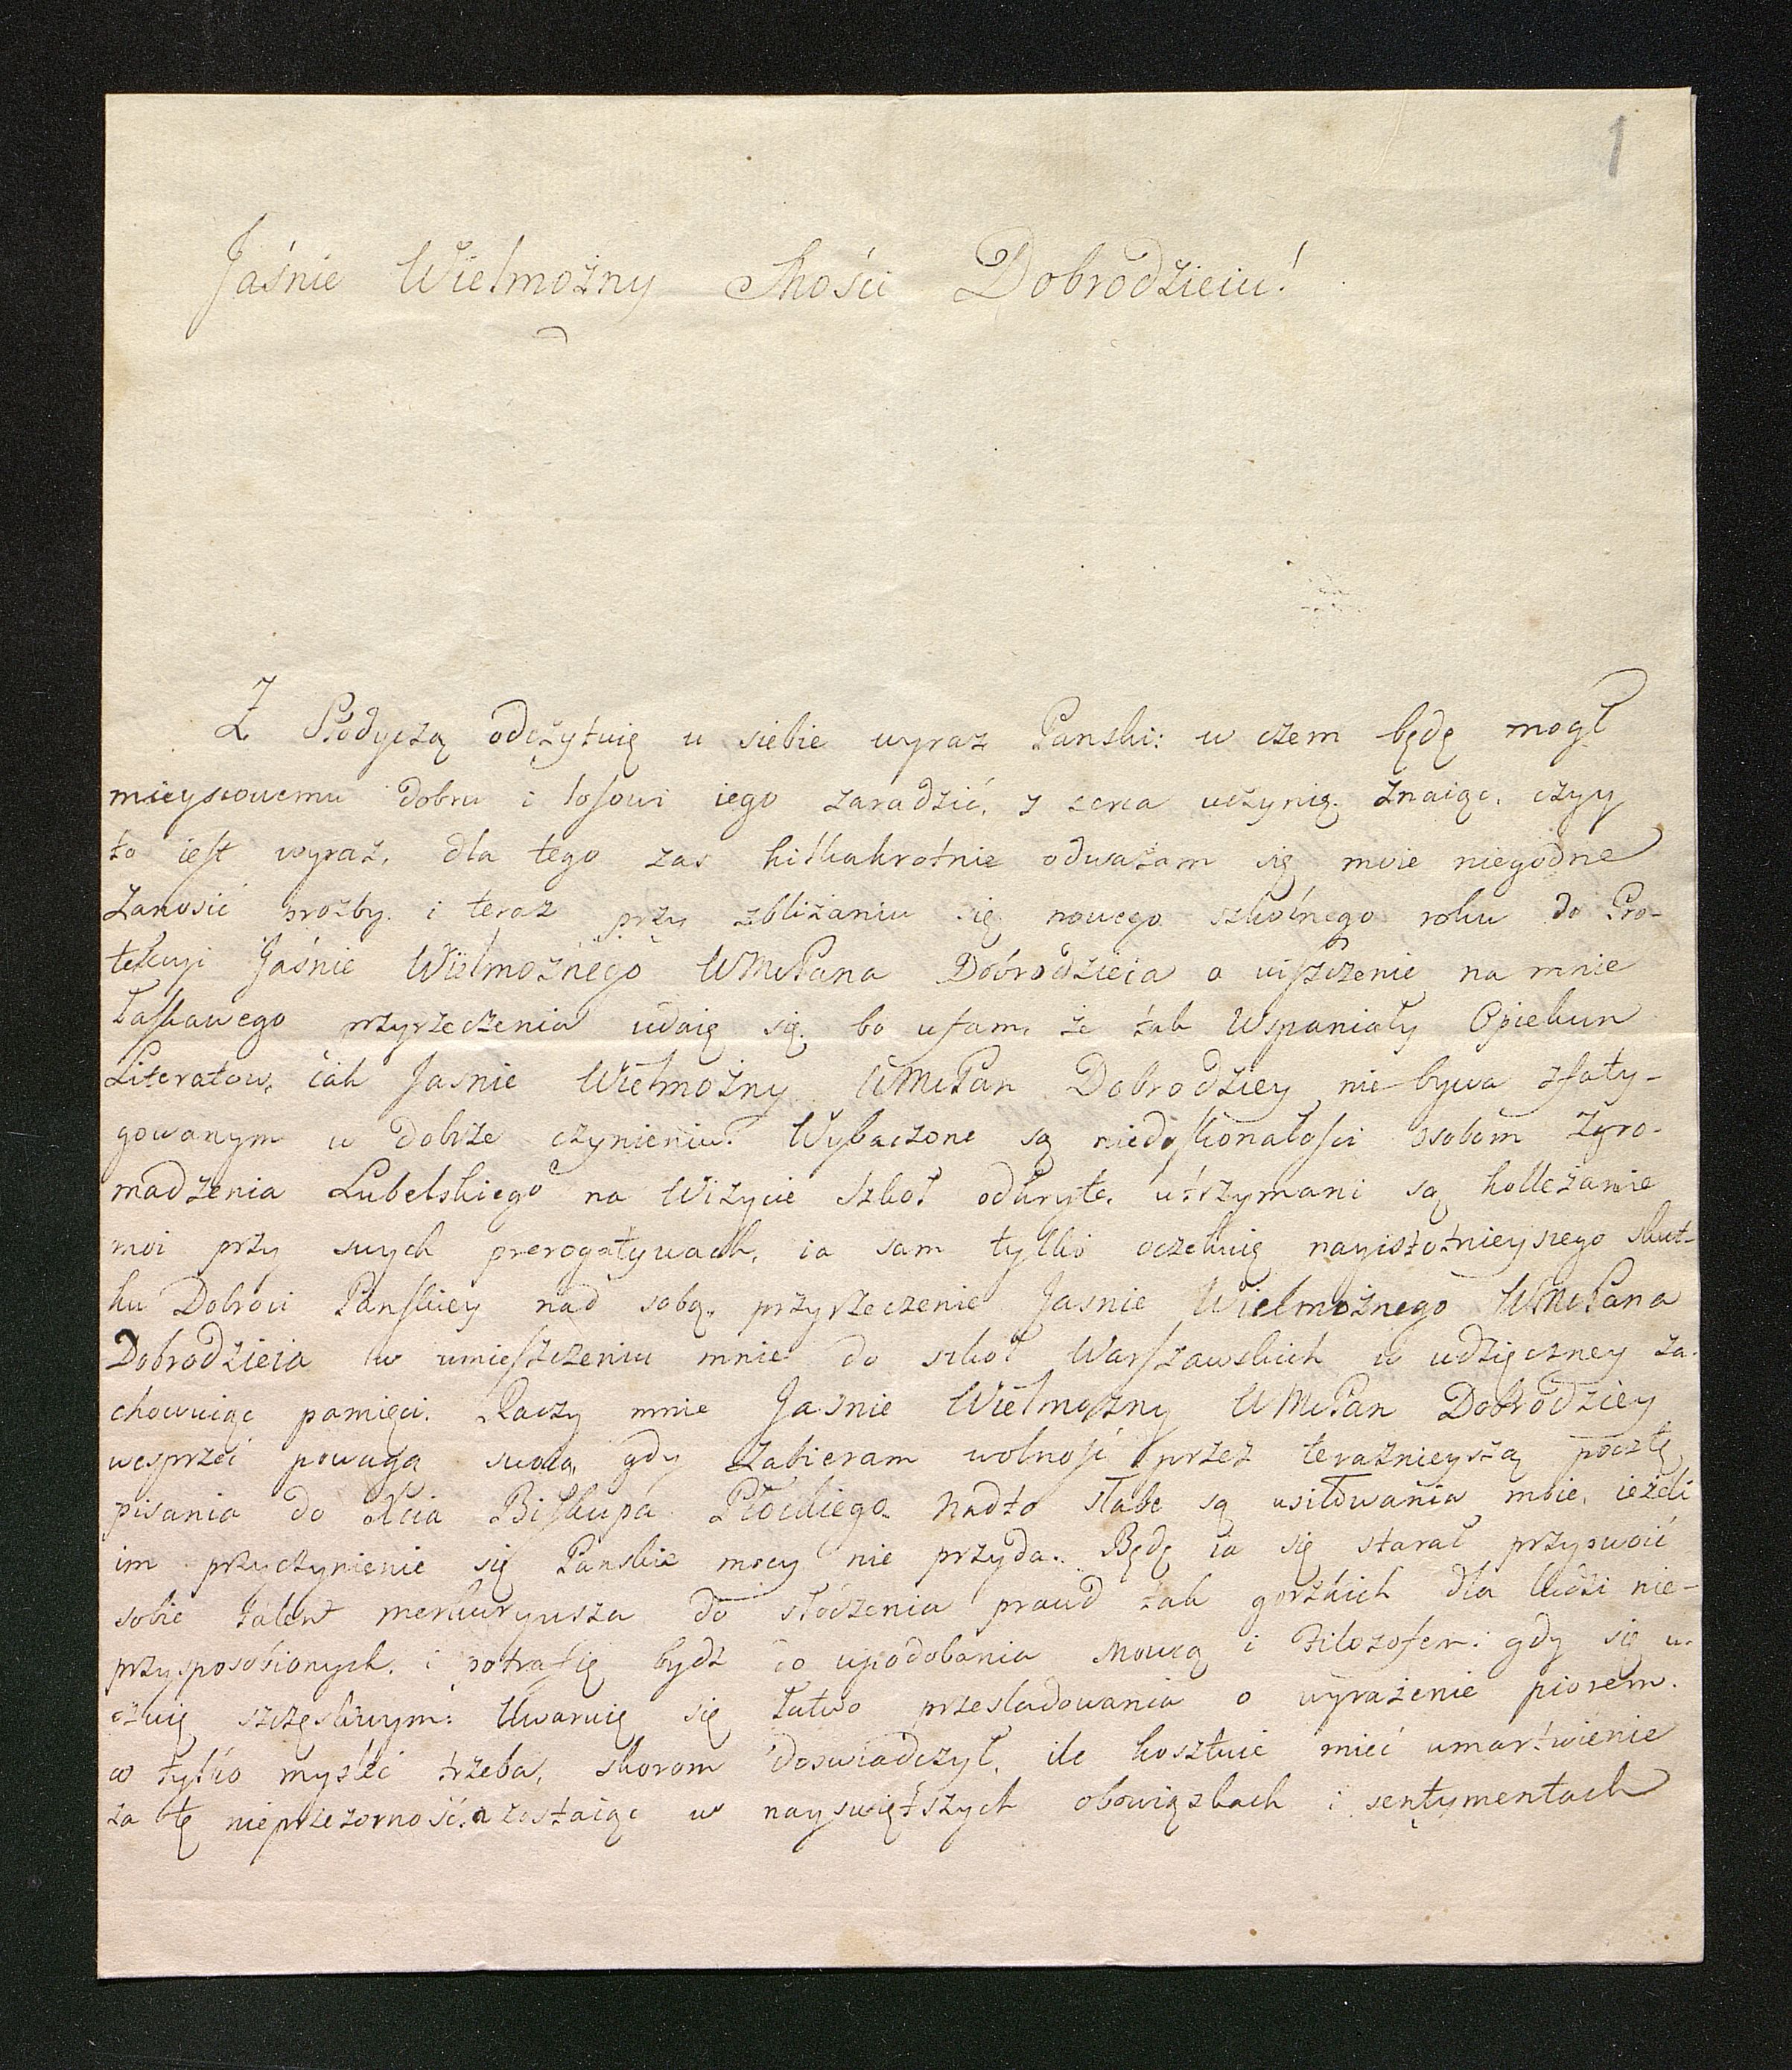 1
Jaśnie Wielmożny Mości Dobrodzieiu!
Z Słodyczą odczytuię u siebie wyraz Panski: w czem będę mogł
mieyscowemu dobru i losowi iego zaradzić, z serca uczynię. Znaiąc, czyy
to iest wyraz, dla tego zas kilkakrotnie odważam się moie niegodne
zanosić prozby. i teraz przy zbliżaniu się nowego szkolnego roku do Pro-
tekcyi Jaśnie Wielmożnego WMcPana Dobrodzieia o uiszczenie na mnie
łaskawego przyrzeczenia udaię się. bo ufam, że tak Wspaniały Opiekun
Literatow, iak Jasnie Wielmożny WMcPan Dobrodziey nie bywa sfaty-
gowanym w dobrze czynieniu. Wybaczone są niedoskonałości osobom Zgro-
madzenia Lubelskiego na Wizycie Szkoł odkryte. utrzymani są kolleżanie
moi przy swych prerogatywach, ia sam tylko oczekuię nayistotnieyszego skut-
ku Dobroci Panskiey nad sobą, przyrzeczenie Jasnie Wielmożnego WMcPana
Dobrodzieia w umieszczeniu mnie do szkoł Warszawskich w wdzięczney za-
chowuiąc pamięci. Raczy mnie Jasnie Wielmożny WMcPan Dobrodziey
wesprzeć powagą swoią, gdy zabieram wolność przez teraznieyszą pocztę
pisania do Xcia Biskupa Płockiego. Nadto słabe są usiłowania moie, ieżeli
im przyczynienie się Panskie mocy nie przyda. Będę ia się starał przyswoić
sobie talent merkuryusza do słodzenia prawd tak gorzkich dla ludzi nie-
przysposobionych. i potrafię bydź do upodobania Mowcą i Filozofem: gdy się u-
czuię szczęsliwym: Uwaruię się łatwo przesladowania o wyrażenie piorem.
w tylko mysleć trzeba, skorom doswiadczył, ile kosztuie mieć umartwienie
za tę nieprzezorność. a zostaiąc w nayswiętszych obowiązkach i sentymentach